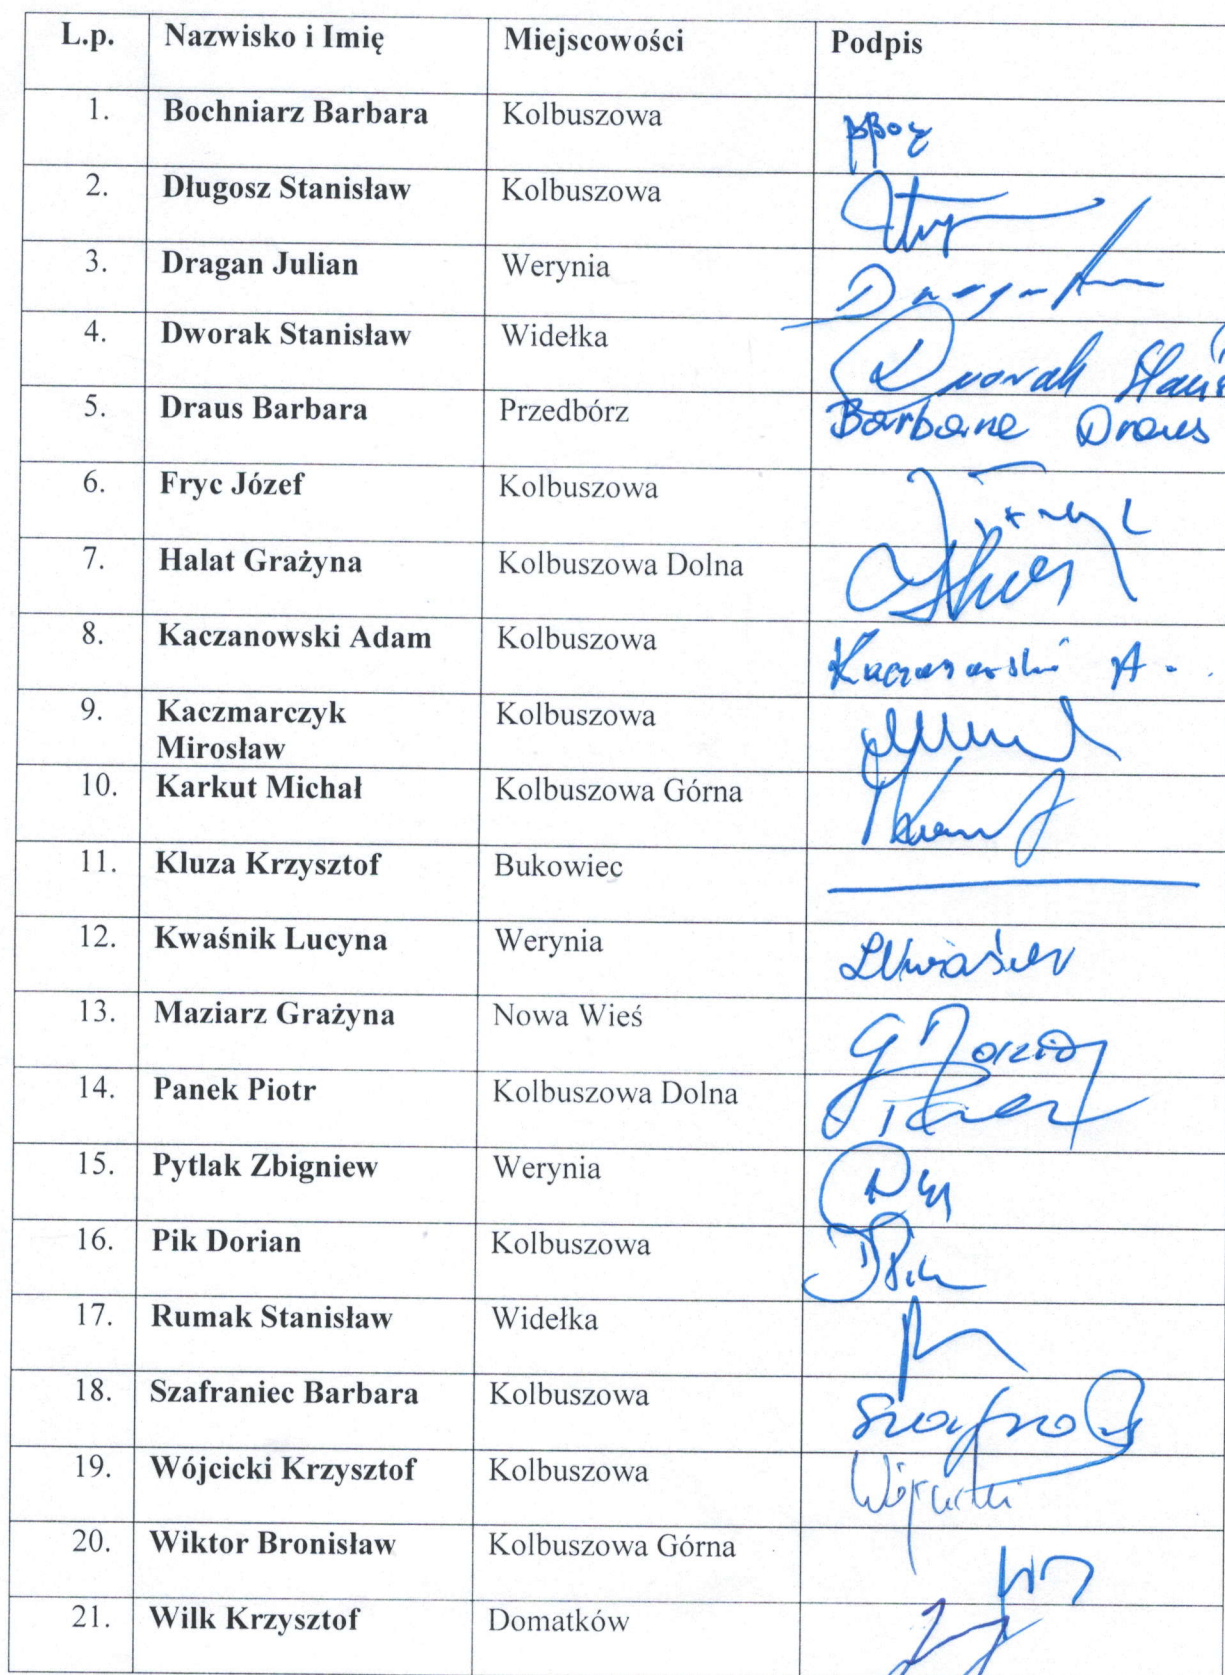 L.p. Nazwisko i Imię Miejscowości Podpis
1. Bochniarz Barbara Kolbuszowa
2. Długosz Stanisław Kolbuszowa
3. Dragan Julian Werynia
4. Dworak Stanisław Widełka Dworak
5. Draus Barbara Przedbórz Barbara Draus
6. Fryc Józef Kolbuszowa
7. Halat Grażyna Kolbuszowa Dolna
8. Kaczanowski Adam Kolbuszowa Kaczanowski A.
9. Kaczmarczyk Kolbuszowa
Mirosław
10. Karkut Michał Kolbuszowa Górna
11. Kluza Krzysztof Bukowiec
12. Kwaśnik Lucyna Werynia
13. Maziarz Grażyna Nowa Wieś
14. Panek Piotr Kolbuszowa Dolna
15. Pytlak Zbigniew Werynia
16. Pik Dorian Kolbuszowa
17. Rumak Stanisław Widełka
18. Szafraniec Barbara Kolbuszowa
19. Wójcicki Krzysztof Kolbuszowa Wójcicki
20. Wiktor Bronisław Kolbuszowa Górna
21. Wilk Krzysztof Domatków